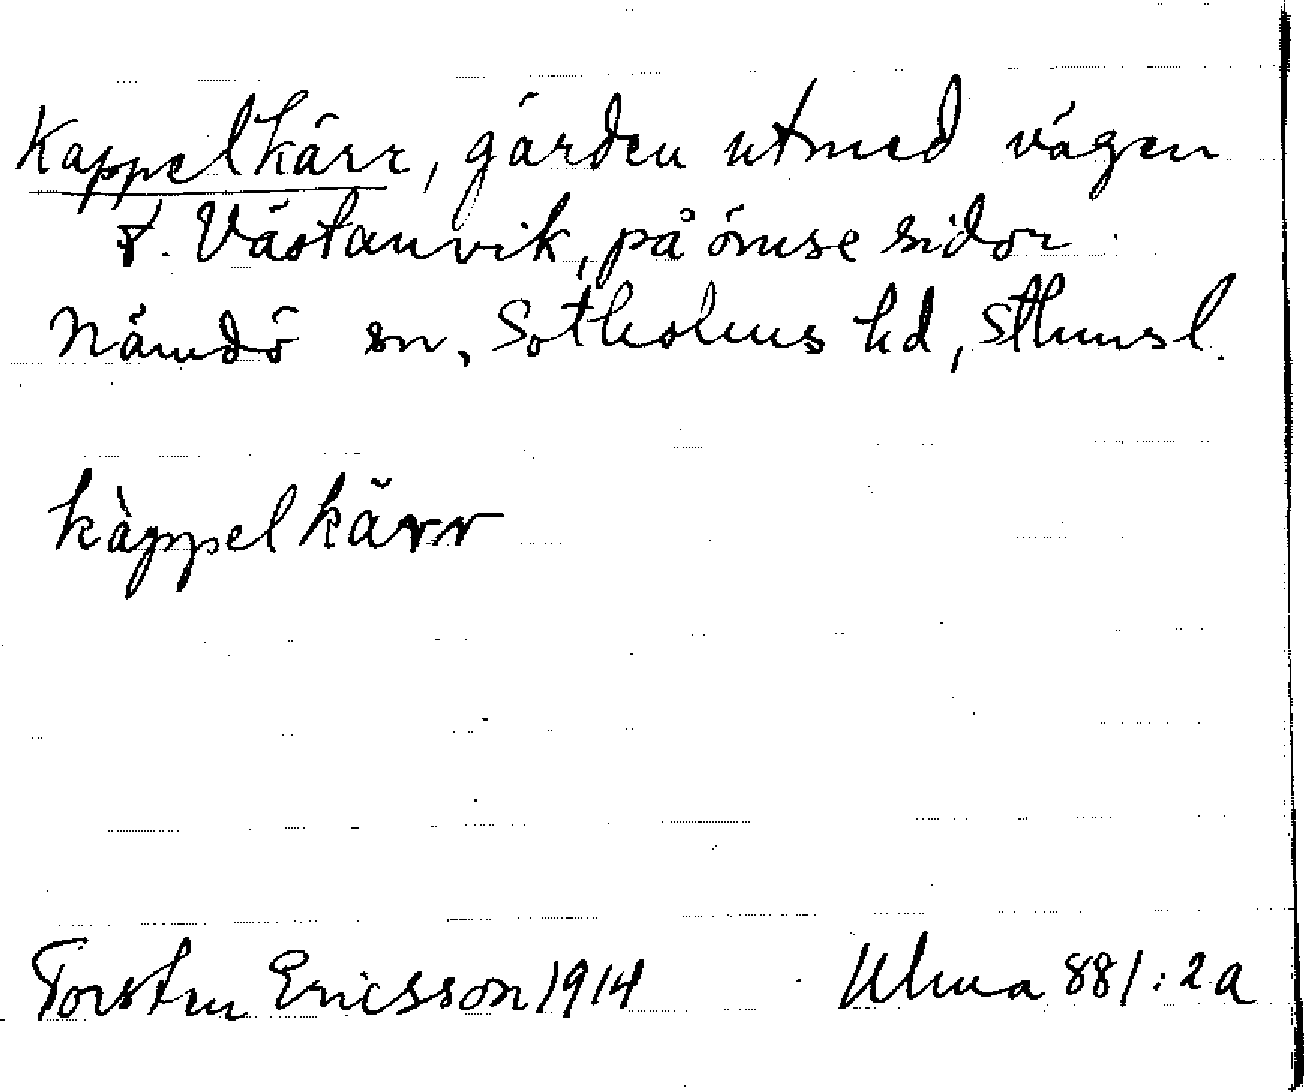 Kappelkärr, gärden utmed vägen
t. Västanvik, på ömse sidor.
Nämdö sn, Sotholms hd, Sthmsl.
kàppelkärr
Torsten Ericsson 1914 Ulma 881:2a